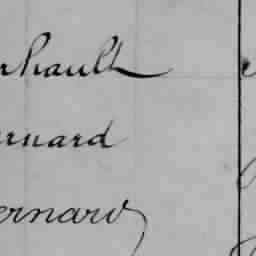 rhault
ernard
ernard